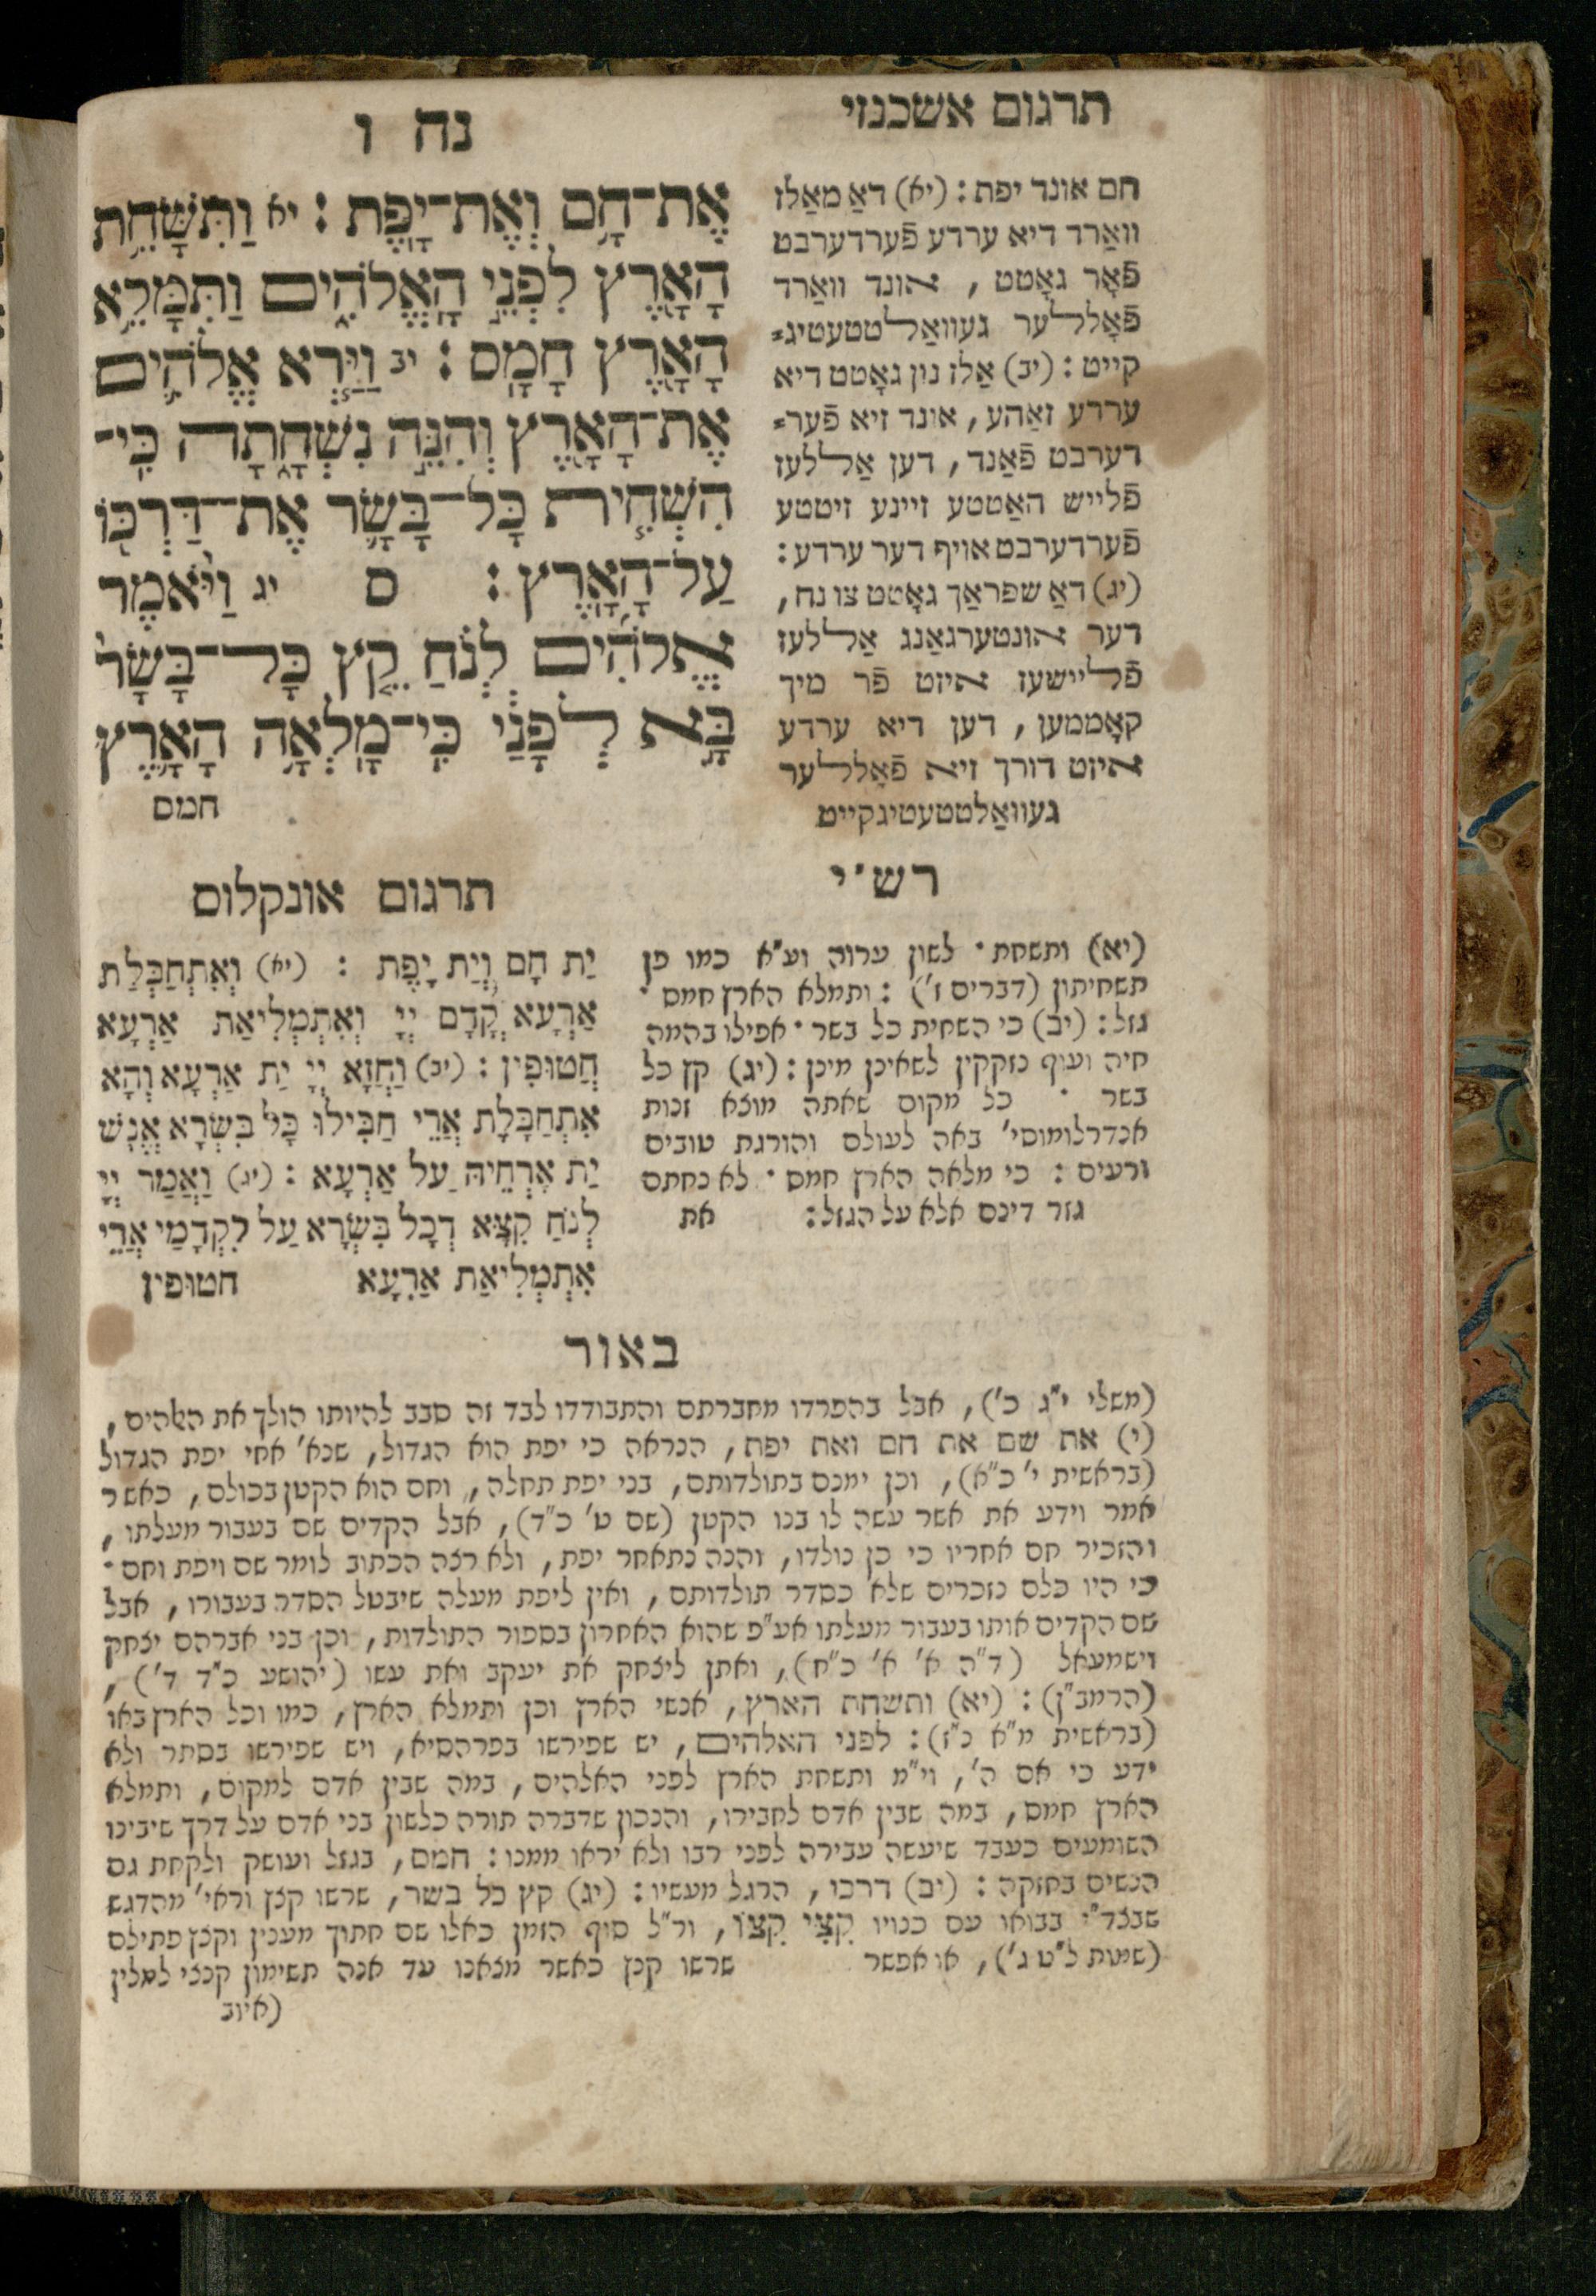 תרגום אשכנזי
נח ו
חם אונד יפת : (יא) דאַ מאַלז
וואַרד דיא ערדע פֿערדערבט
פֿאָר גאָטט , אונד וואַרד
פֿאָללער געוואַלטטעטיג=
קייט : (יב) אַלז נון גאָטט דיא
ערדע זאַהע , אונד זיא פֿער=
דערבט פֿאַנד , דען אַללעז
פֿלייש האַטטע זיינע זיטטע
פֿערדערבט אויף דער ערדע :
(יג) דאַ שפראַך גאָטט צו נח ,
דער אונטערגאַנג אַללעז
פֿליישעז איזט פֿר מיך
קאָממען , דען דיא ערדע
איזט דורך זיא פֿאָללער
געוואַלטטעטיגקייט
אֶת־חָ֥ם וְאֶת־יָפֶֽת : יא וַתִּשָּׁחֵ֥ת
הָאָ֖רֶץ לִפְנֵ֣י הָֽאֱלֹהִ֑ים וַתִּמָּלֵ֥א
הָאָ֖רֶץ חָמָֽס : יב וַיַּ֧רְא אֱלֹהִ֛ים
אֶת־הָאָ֖רֶץ וְהִנֵּ֣ה נִשְׁחָ֑תָה כִּֽי־
הִשְׁחִ֧ית כָּל־בָּשָׂ֛ר אֶת־דַּרְכּ֖וֹ
עַל־הָאָֽרֶץ : ס יג וַיֹּ֨אמֶר
אֱלֹהִ֜ים לְנֹ֗חַ קֵ֤ץ כָּל־בָּשָׂר֙
בָּ֣א לְפָנַ֔י כִּֽי־מָלְאָ֥ה הָאָ֛רֶץ
חמס
רש״י
(יא) ותשחת · לשון ערוה וע״א כמו פן
תשחיתון (דברים ז׳) : ותמלא הארץ חמס ·
גזל : (יב) כי השחית כל בשר · אפילו בהמה
חיה ועוף נזקקין לשאינן מינן : (יג) קץ כל
בשר · כל מקום שאתה מוצא זנות
אנדרלומוסי׳ באה לעולם והורגת טובים
ורעים : כי מלאה הארץ חמס · לא נחתם
גזר דינם אלא על הגזל : את
תרגום אונקלוס
יַת חָם וְיַת יָפֶת : (יא) וְאִתְחַבְּלַת
אַרְעָא קֳדָם יְיָ וְאִתְמְלִיאַת אַרְעָא
חֲטוּפִין : (יב) וַחֲזָא יְיָ יַת אַרְעָא וְהָא
אִתְחַבָּלַת אֲרֵי חַבִּילוּ כָּל בִּשְׂרָא אֱנָשׁ
יַת אָרְחֵיהּ עַל אַרְעָא : (יג) וַאֲמַר יְיָ
לְנֹחַ קִצָּא דְכָל בִּשְׂרָא עַל לִקְדָמַי אֲרֵי
אִתְמְלִיאַת אַרְעָא חטופין
באור
(משלי י״ג כ׳) , אבל בהפרדו מחברתם והתבודדו לבד זה סבב להיותו הולך את האלהים ,
(י) את שם את חם ואת יפת , הנראה כי יפת הוא הגדול , שנא׳ אחי יפת הגדול
(בראשית י׳ כ״א) , וכן ימנם בתולדותם , בני יפת תחלה , וחם הוא הקטן בכולם , כאשר
אמר וידע את אשר עשה לו בנו הקטן (שם ט׳ כ״ד) , אבל הקדים שם בעבור מעלתו ,
והזכיר חם אחריו כי כן נולדו , והנה נתאחר יפת , ולא רצה הכתוב לומר שם ויפת וחם ·
כי היו כלם נזכרים שלא כסדר תולדותם , ואין ליפת מעלה שיבטל הסדר בעבורו , אבל
שם הקדים אותו בעבור מעלתו אע״פ שהוא האחרון בספור התולדות , וכן בני אברהם יצחק
וישמעאל (ד״ה א׳ א׳ כ״ח) , ואתן ליצחק את יעקב ואת עשו (יהושע כ״ד ד׳) ,
(הרמב״ן) : (יא) ותשחת הארץ , אנשי הארץ וכן ותמלא הארץ , כמו וכל הארץ באו
(בראשית מ״א נ״ז) : לפני האלהים , יש שפירשו בפרהסיא , ויש שפירשו בסתר ולא
ידע כי אם ה׳ , וי״מ ותשחת הארץ לפני האלהים , במה שבין אדם למקום , ותמלא
הארץ חמס , במה שבין אדם לחבירו , והנכון שדברה תורה כלשון בני אדם על דרך שיבינו
השומעים כעבד שיעשה עבירה לפני רבו ולא יראו ממנו : חמס , בגזל ועושק ולקחת גם
הנשים בחזקה : (יב) דרכו , הרגל מעשיו : (יג) קץ כל בשר , שרשו קצץ וראי׳ מהדגש
שבצד״י בבואו עם כנויו קִצִּי קִצּוֹ , ור״ל סוף הזמן כאלו שם חתוך מענין וקצץ פתילם
(שמות ל״ט ג׳) , או אפשר שרשו קנץ כאשר מצאנו עד אנה תשימון קנצי למלין
(איוב